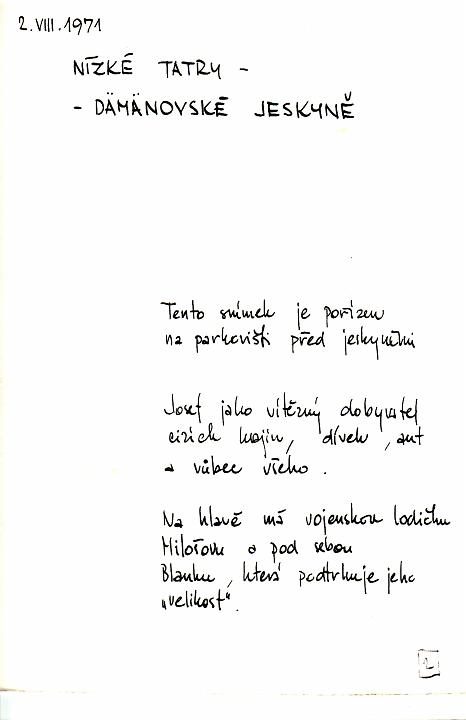 2.VIII.1971
NÍZKÉ TATRY -
- DÄMÄNOVSKÉ JESKYNĚ
Tento snímek je pořízen
na parkovišti před jeskyněmi
Josef jako vítězný dobyvatel
cizích krajin, dívek, aut
a vůbec všeho.
Na hlavě má vojenskou lodičku
Milošovu a pod sebou
Blanku, která podtrhuje jeho
„velikost".
2